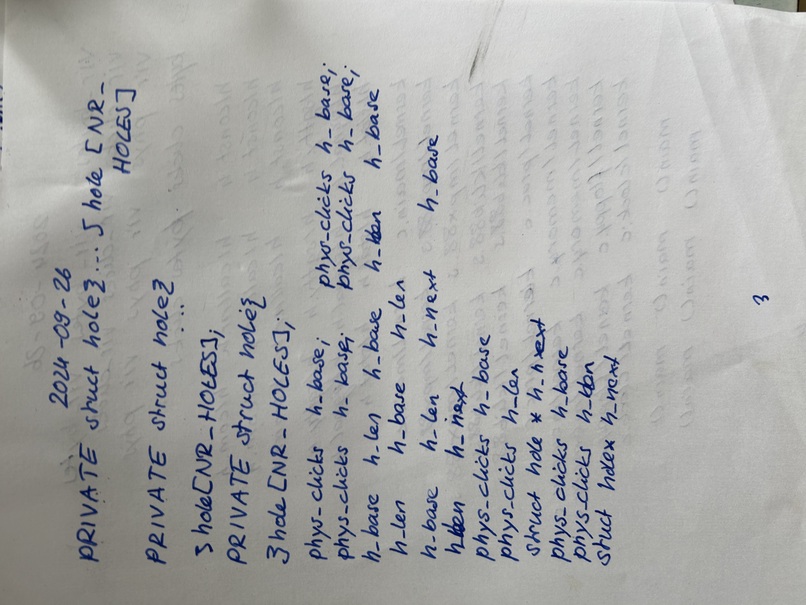 2024-09-26
PRIVATE struct hole{...} hole [NR_
HOLES]
PRIVATE struct hole{
...
} hole[NR_HOLES];
PRIVATE struct hole{
} hole [NR_HOLES];
phys_clicks h_base; phys_clicks h_base;
phys_clicks h_base; phys_clicks h_base;
h_base h_len h_base h_len h_base
h_len h_base h_len
h_base h_len h_next h_base
h_len h_next
phys_clicks h_base
phys_clicks h_len
struct hole * h_next
phys_clicks h_base
phys_clicks h_len
struct hole* h_next
3